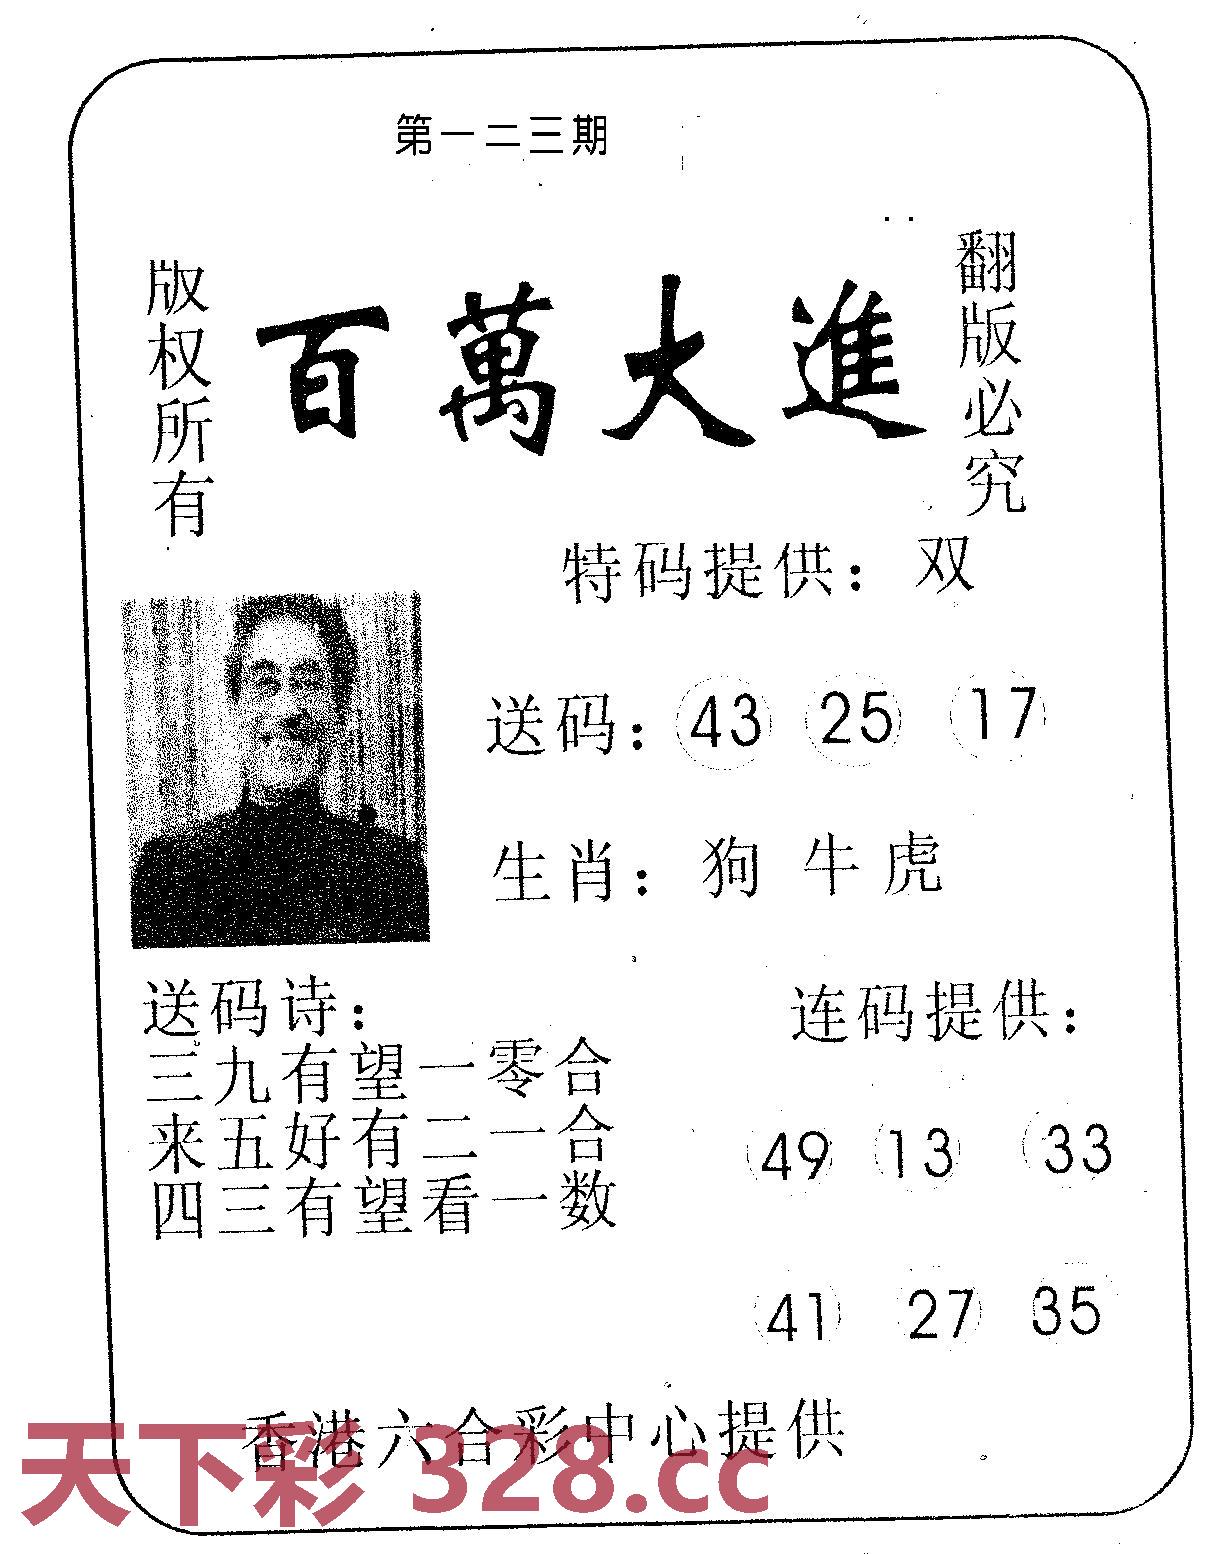 第一二三期
版权所有
百萬大進
翻版必究
特码提供：双
送码：43 25 17
生肖：狗 牛 虎
送码诗：
三九有望一零合
来五好有二一合
四三有望看一数
连码提供：
49 13 33
41 27 35
香港六合彩中心提供
天下彩 328.cc